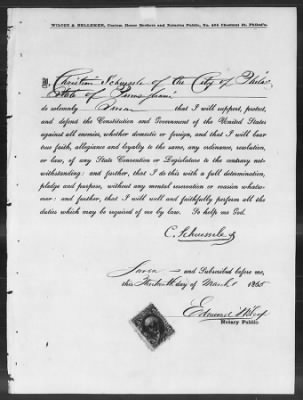 WILCOX & HELLERMAN, Custom House Brokers and Notaries Public, No. 404 Chestnut St. Philad'a.
I, Christian Schussele of the City of Philad
State of Pennsylvania
do solemnly Swear that I will support, protect,
and defend the Constitution and Government of the United States
against all enemies, whether domestic or foreign, and that I will bear
true faith, allegiance and loyalty to the same, any ordinance, resolution,
or law, of any State Convention or Legislature to the contrary not-
withstanding: and further, that I do this with a full determination,
pledge and purpose, without any mental reservation or evasion whatso-
ever: and further, that I will well and faithfully perform all the
duties which may be required of me by law. So help me God.
C. Schussele
Sworn and Subscribed before me,
this day of March 1865
Edmund
Notary Public